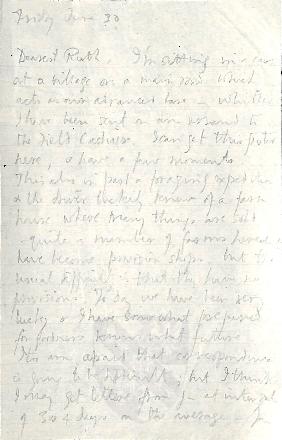 Friday June 30
Dearest Ruth. I'm sitting in a car
at a village on a main road which
acts as our advanced base — whither
I have been sent on an errand to
the Field Cashier. I can get this posted
here, & have a few moments.
This also is in part a foraging expedition
& the driver luckily knew of a farm
house where many things are sold
– quite a number of farms here
have become provision shops, but the
usual difficulty is that they have no
provisions. To day we have been very
lucky & I have somewhat prepared
for
I am afraid that correspondence
is going to be difficult, but I think
I may get letters from you at intervals
of 3 or 4 days on the average –